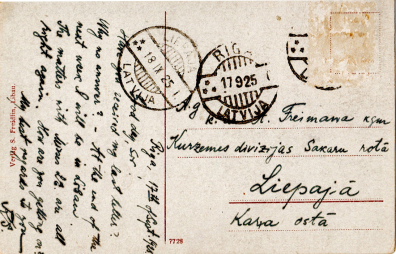 Riga, 17th Sept 1925
Have you received my last letter?
Why no answer? - At the end of the
next week I will be in Libau
The matters with are all
right again. How are you getting on?
My best regards to you
Verlag S. Fränklin, Libau.
18 IX 25
LATVIJA
RIGA
17 9 25
LATVIJA
A. Freimana kgm
Kurzemes divizijas Sakaru rotā
Liepajā
Kara ostā
7728